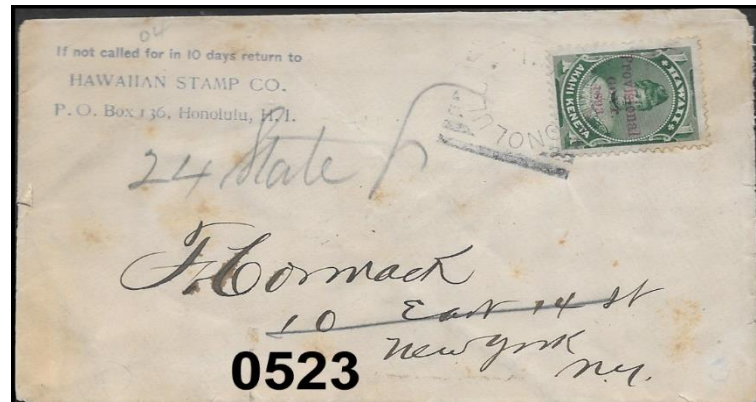 04
If not called for in 10 days return to
HAWAIIAN STAMP CO.
P. O. Box 136, Honolulu, H. I.
24 State
HONOLU
HAWAII
Provisional
GOVT.
1893
AKAHI KENETA
F. Cormack
10 East 14 St
New York
N.Y.
0523